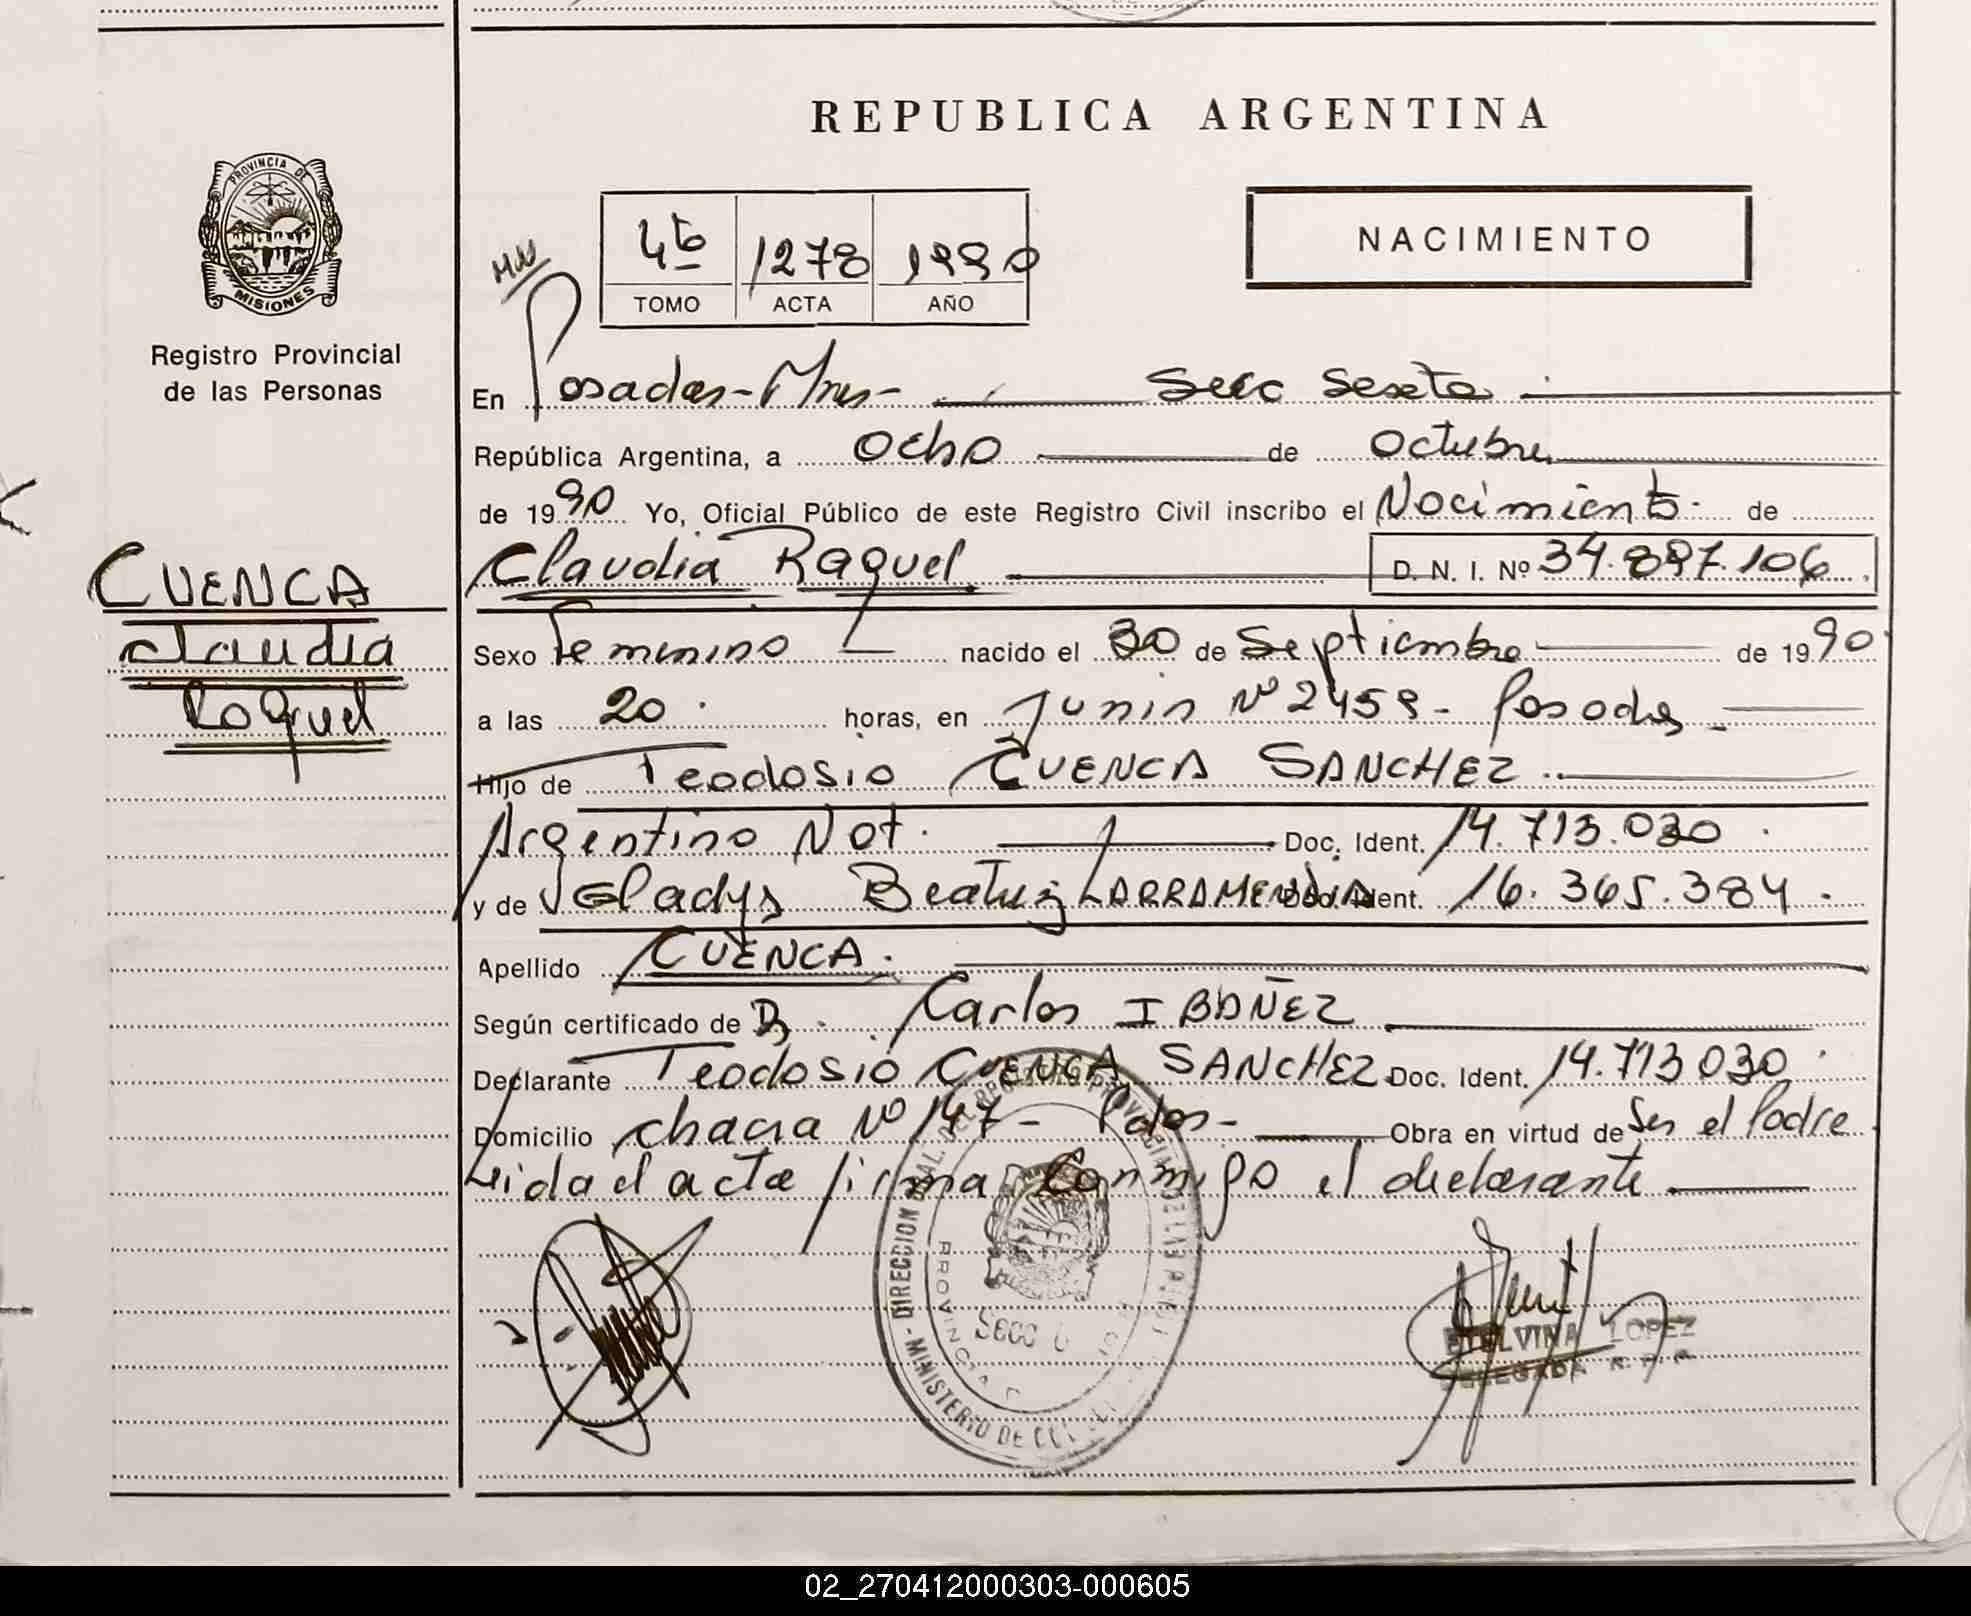 REPUBLICA ARGENTINA
PROVINCIA DE
MISIONES
Registro Provincial
de las Personas
NACIMIENTO
4to 1278 1990
TOMO ACTA AÑO
En Posadas-Mnes- Secc Sexta
República Argentina, a Ocho de Octubre
de 1990 Yo, Oficial Público de este Registro Civil inscribo el Nacimiento de
Claudia Raquel D. N. I. Nº 34.897.106
CUENCA
Claudia
Raquel
Sexo Femenino nacido el 30 de Septiembre de 1990
a las 20 horas, en Junin Nº 2459 - Posadas
Hijo de Teodosio CUENCA SANCHEZ
Argentino Nat. Doc. Ident. 14.713.030
y de Gladys Beatriz LARRAMENDIA Doc. Ident. 16.365.384
Apellido CUENCA.
Según certificado de Dr. Carlos IBAÑEZ
Declarante Teodosio CUENCA SANCHEZ Doc. Ident. 14.713030
Domicilio chacra Nº 147 - Pdas- Obra en virtud de Ser el Padre
Leida el acta firma Conmigo el declarante
Secc 6
ETELVINA LOPEZ
DELEGADA R. P. P.
02_270412000303-000605